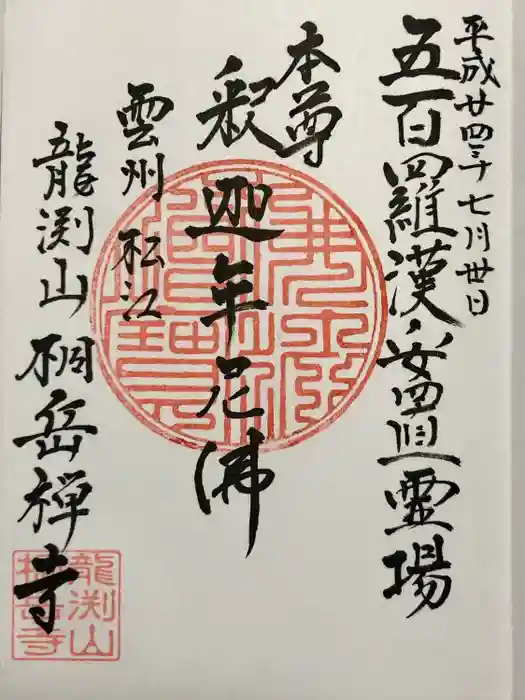 平成廿四年七月卅日
五百羅漢安置霊場
本尊
釈迦牟尼佛
雲州 松江
龍渕山 桐岳禅寺
龍渕山
桐岳寺